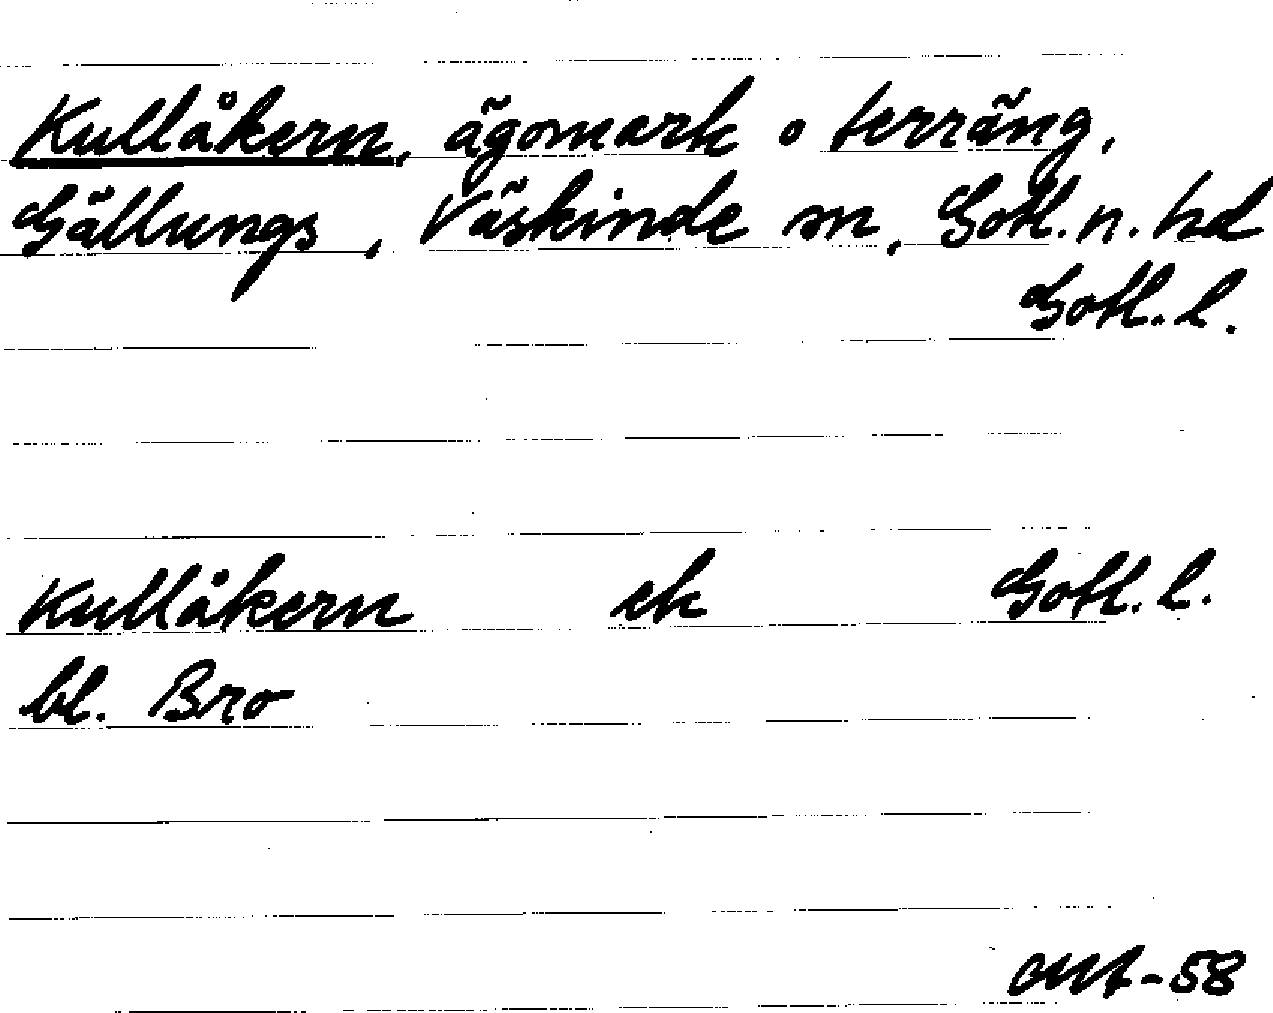 Kullåkern, ägomark o terräng,
Gällungs, Väskinde sn, Gotl. n. hd
Gotl. l.
Kullåkern ek Gotl. l.
bl. Bro
-58